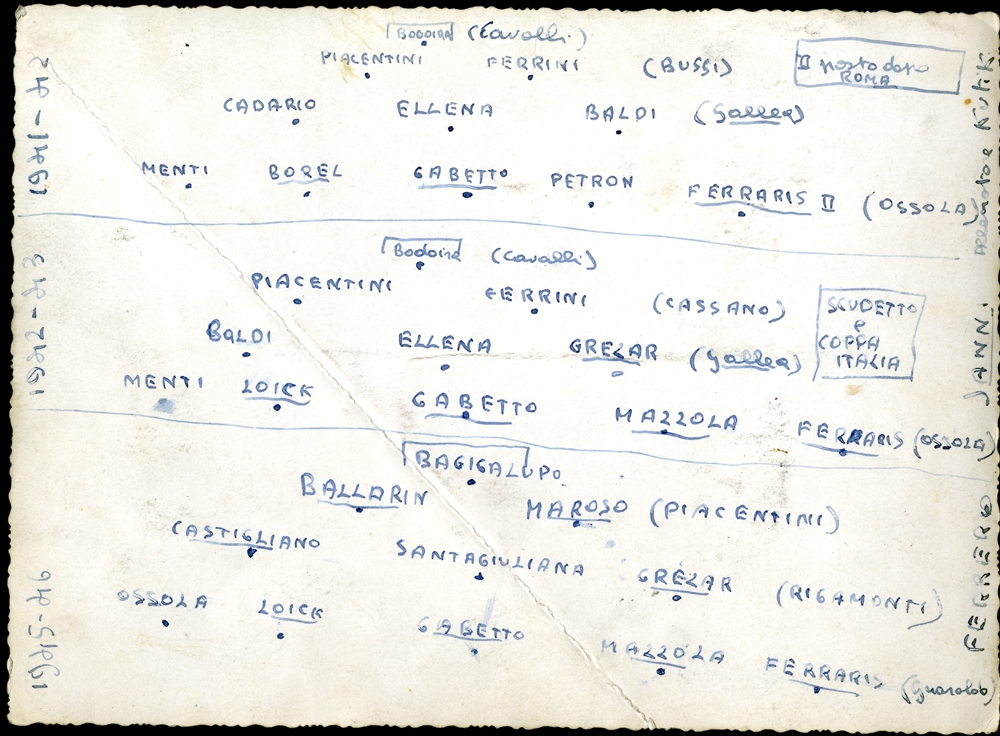 1941-42
BODOIRA (Cavalli)
PIACENTINI FERRINI (BUSSI)
II posto dopo
ROMA
CADARIO ELLENA BALDI (Gallea)
MENTI BOREL GABETTO PETRON FERRARIS II (OSSOLA)
1942-43
Bodoira (Cavalli)
PIACENTINI FERRINI (CASSANO)
SCUDETTO
e
COPPA
ITALIA
BALDI ELLENA GREZAR (Gallea)
MENTI LOICK GABETTO MAZZOLA FERRARIS (OSSOLA)
1945-46
BAGIGALUPO
BALLARIN MAROSO (PIACENTINI)
CASTIGLIANO SANTAGIULIANA GREZAR (RIGAMONTI)
OSSOLA LOICK GABETTO MAZZOLA FERRARIS (Guaraldo)
FERRERO JANNI Allenatore Kutik